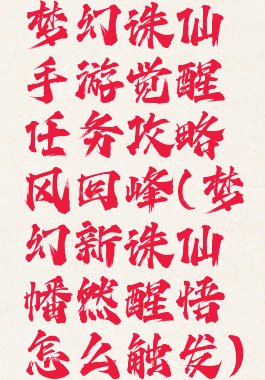 梦幻诛仙
手游觉醒
任务攻略
风回峰(梦
幻新诛仙
幡然醒悟
怎么触发)